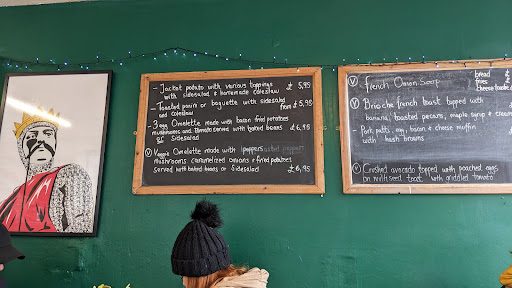 - Jacket potato with various toppings
with sidesalad & homemade coleslaw £ 5,95
- Toasted panini or baguette with sidesalad
and coleslaw from £ 5,95
- 3 egg Omelette made with bacon fried potatoes
mushrooms and tomato served with baked beans
or Sidesalad £ 6,95
V Veggie Omelette made with peppers
mushrooms caramelized onions & fried potatoes
served with baked beans or sidesalad £ 6,95
V French Onion Soup
bread
Cheese
V Brioche french toast topped with
banana, toasted pecans, maple syrup & cream
- Pork patty, egg, bacon & cheese muffin
with hash browns
V Crushed avocado topped with poached eggs
on multiseed toast with griddled tomato